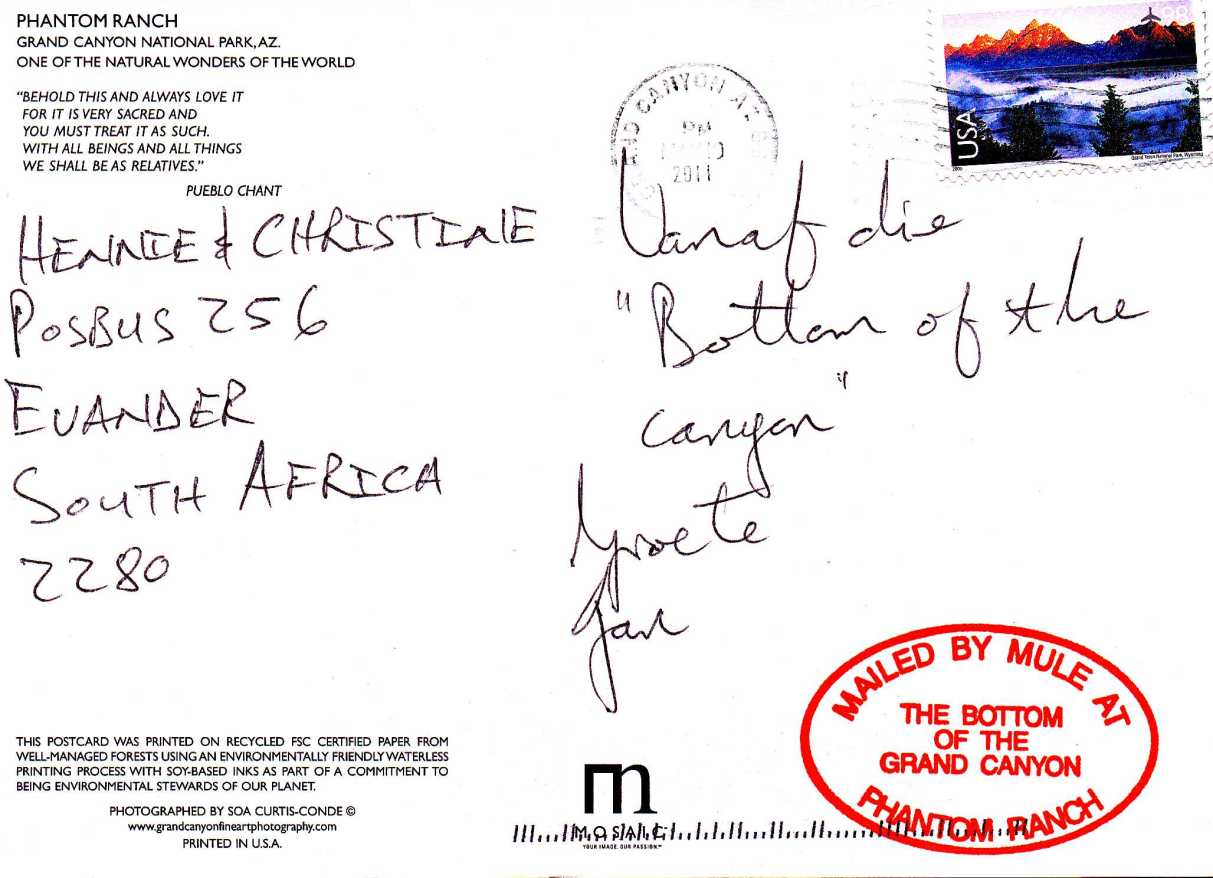 PHANTOM RANCH
GRAND CANYON NATIONAL PARK, AZ.
ONE OF THE NATURAL WONDERS OF THE WORLD
"BEHOLD THIS AND ALWAYS LOVE IT
FOR IT IS VERY SACRED AND
YOU MUST TREAT IT AS SUCH.
WITH ALL BEINGS AND ALL THINGS
WE SHALL BE AS RELATIVES."
PUEBLO CHANT
HENNIE & CHRISTINE
POSBUS 256
EVANDER
SOUTH AFRICA
2280
THIS POSTCARD WAS PRINTED ON RECYCLED FSC CERTIFIED PAPER FROM
WELL-MANAGED FORESTS USING AN ENVIRONMENTALLY FRIENDLY WATERLESS
PRINTING PROCESS WITH SOY-BASED INKS AS PART OF A COMMITMENT TO
BEING ENVIRONMENTAL STEWARDS OF OUR PLANET.
PHOTOGRAPHED BY SOA CURTIS-CONDE ©
www.grandcanyonfineartphotography.com
PRINTED IN U.S.A.
CANYON AZ
PM
2011
98
USA
Grand Teton National Park, Wyoming
Vanaf die
"Bottom of the
canyon"
Groete
Jan
m
MOSAIC
YOUR IMAGE. OUR PASSION.™
MAILED BY MULE AT
THE BOTTOM
OF THE
GRAND CANYON
PHANTOM RANCH